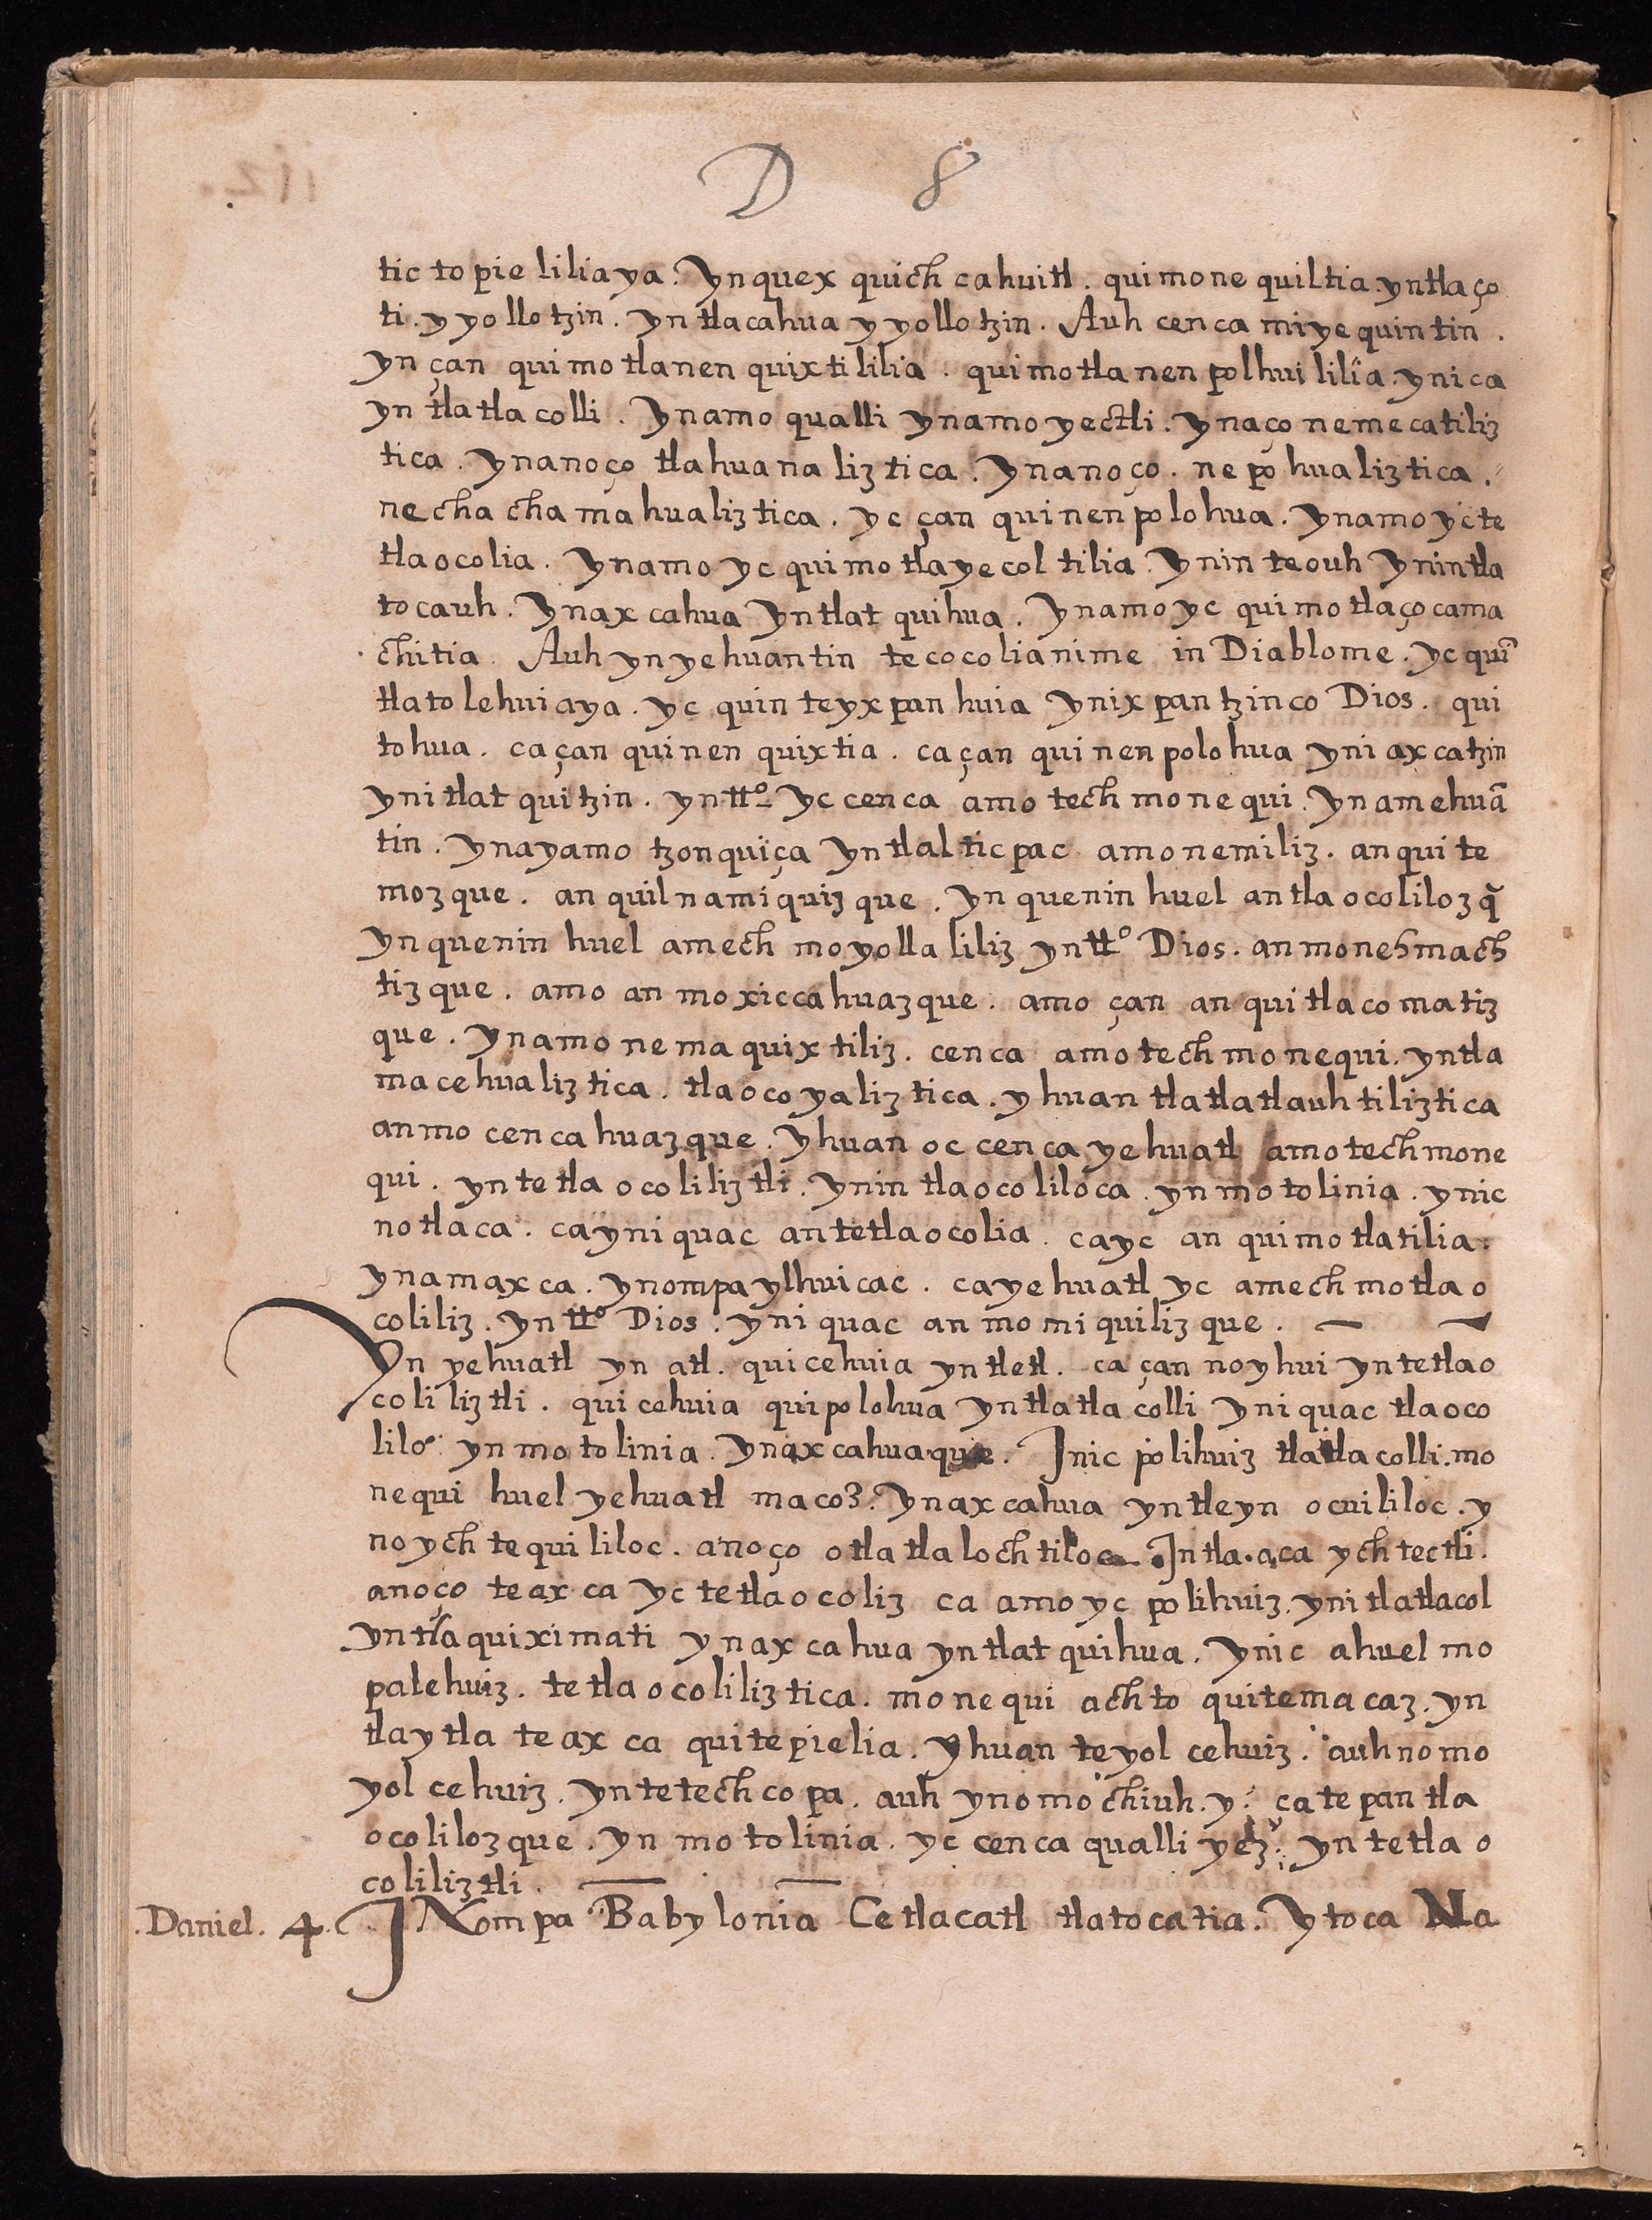 D 8
tic to pie liliaya. Ynquex quich cahuitl. quimone quiltia yntlaço
ti. y yollo tzin. yn tlacahua y yollo tzin. Auh cen ca miye quin tin.
yn çan qui mo tlanen quixti lilia. qui motla nen polhui lilia. ynica
yn tlatla colli. Ynamo qualli ynamo yectli. ynaço nemecatiliz
tica. ynanoço tlahuana liztica. Ynanoço. ne po hualiztica.
ne cha cha ma hualiztica. yc çan quinenpolohua. Ynamo yc te
tlaocolia. ynamo yc quimo tlayecol tilia. ynin teouh ynintla
tocauh. ynax cahua yntlat quihua. ynamo yc quimotlaçocama
chitia. Auh ynyehuantin tecocolianime in Diablome. yc qui͂
tlatolehuiaya. yc quin teyxpan huia ynixpan tzinco Dios. qui
tohua. caçan quinen quixtia. caçan quinenpolohua yni axcatzin
ynitlat quitzin. yntt.º yc cenca amo tech monequi. ynamehuā
tin. ynayamo tzonquiça yntlalticpac amonemiliz. anquite
mozque. an quilnamiquiz que. yn quenin huel antlaocolilozq̃
yn quenin huel amech moyolla liliz yntt.º Dios. anmonehmach
tiz que. amo an moxiccahuazque. amo çan an quitlacomatiz
que. ynamo nemaquixtiliz. cenca amotech monequi. yntla
macehualiztica. tlaocoyaliztica. yhuan tlatlatlauhtiliztica
anmo cencahuazque. yhuan oc cenca yehuatl amotechmone
qui. yntetlaocoliliztli. ynin tlaocoliloca. ynmotolinia. ynic
notlaca. cayniquac antetlaocolia. cayc an quimotlatilia.
ynamaxca. ynompaylhuicac. cayehuatl yc amech motlao
coliliz. yntt.º Dios. yniquac anmomiquilizque.
Yn yehuatl yn atl. quicehuia yntletl. caçan noyhui yntetlao
coliliztli. quicehuia quipolohua yntlatlacolli yniquac tlaoco
lilo. ynmotolinia. ynaxcahuaque. Inic polihuiz tlatlacolli. mo
nequi huel yehuatl macoz. ynaxcahua yntleyn ocuililoc. y
noychtequililoc. anoço otlatlalochtiloc. Intla. aca ychtectli.
anoço teaxca yc tetlaocoliz ca amo yc polihuiz. ynitlatlacol
yntla quiximati ynaxcahua yntlatquihua. ynic ahuel mo
palehuiz. tetlaocoliliztica. monequi achto quitemacaz. yn
tlaytla teaxca quitepielia. yhuan teyolcehuiz. auhnomo
yolcehuiz. yntetechcopa. auh ynomochiuh. y. çatepan tla
ocolilozque. yn motolinia. yc cenca qualli yez. yntetlao
coliliztli.
.Daniel. 4. INompa Babylonia Cetlacatl tlatocatia. Ytoca Na